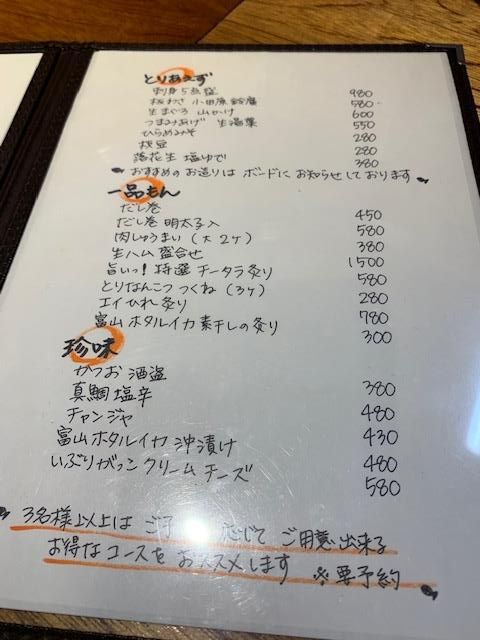 とりあえず
刺身5点盛 980
板わさ 小田原鈴廣 580
生まぐろ 山かけ 600
つまみあげ 生湯葉 550
ひらめみそ 280
枝豆 280
落花生 塩ゆで 380
おすすめのお造りは ボードに お知らせしております
一品もん
だし巻 450
だし巻 明太子入 580
肉しゅうまい (大2ケ) 380
生ハム盛合せ 1500
旨いっ! 特選 チータラ炙り 580
とりなんこつ つくね (3ケ) 280
エイひれ炙り 780
富山ホタルイカ素干しの炙り 300
珍味
かつお 酒盗 380
真鯛塩辛 480
チャンジャ 430
富山ホタルイカ沖漬け 480
いぶりがっこクリームチーズ 580
3名様以上は ご 応じて ご用意出来る
お得なコースを おススメします ※要予約